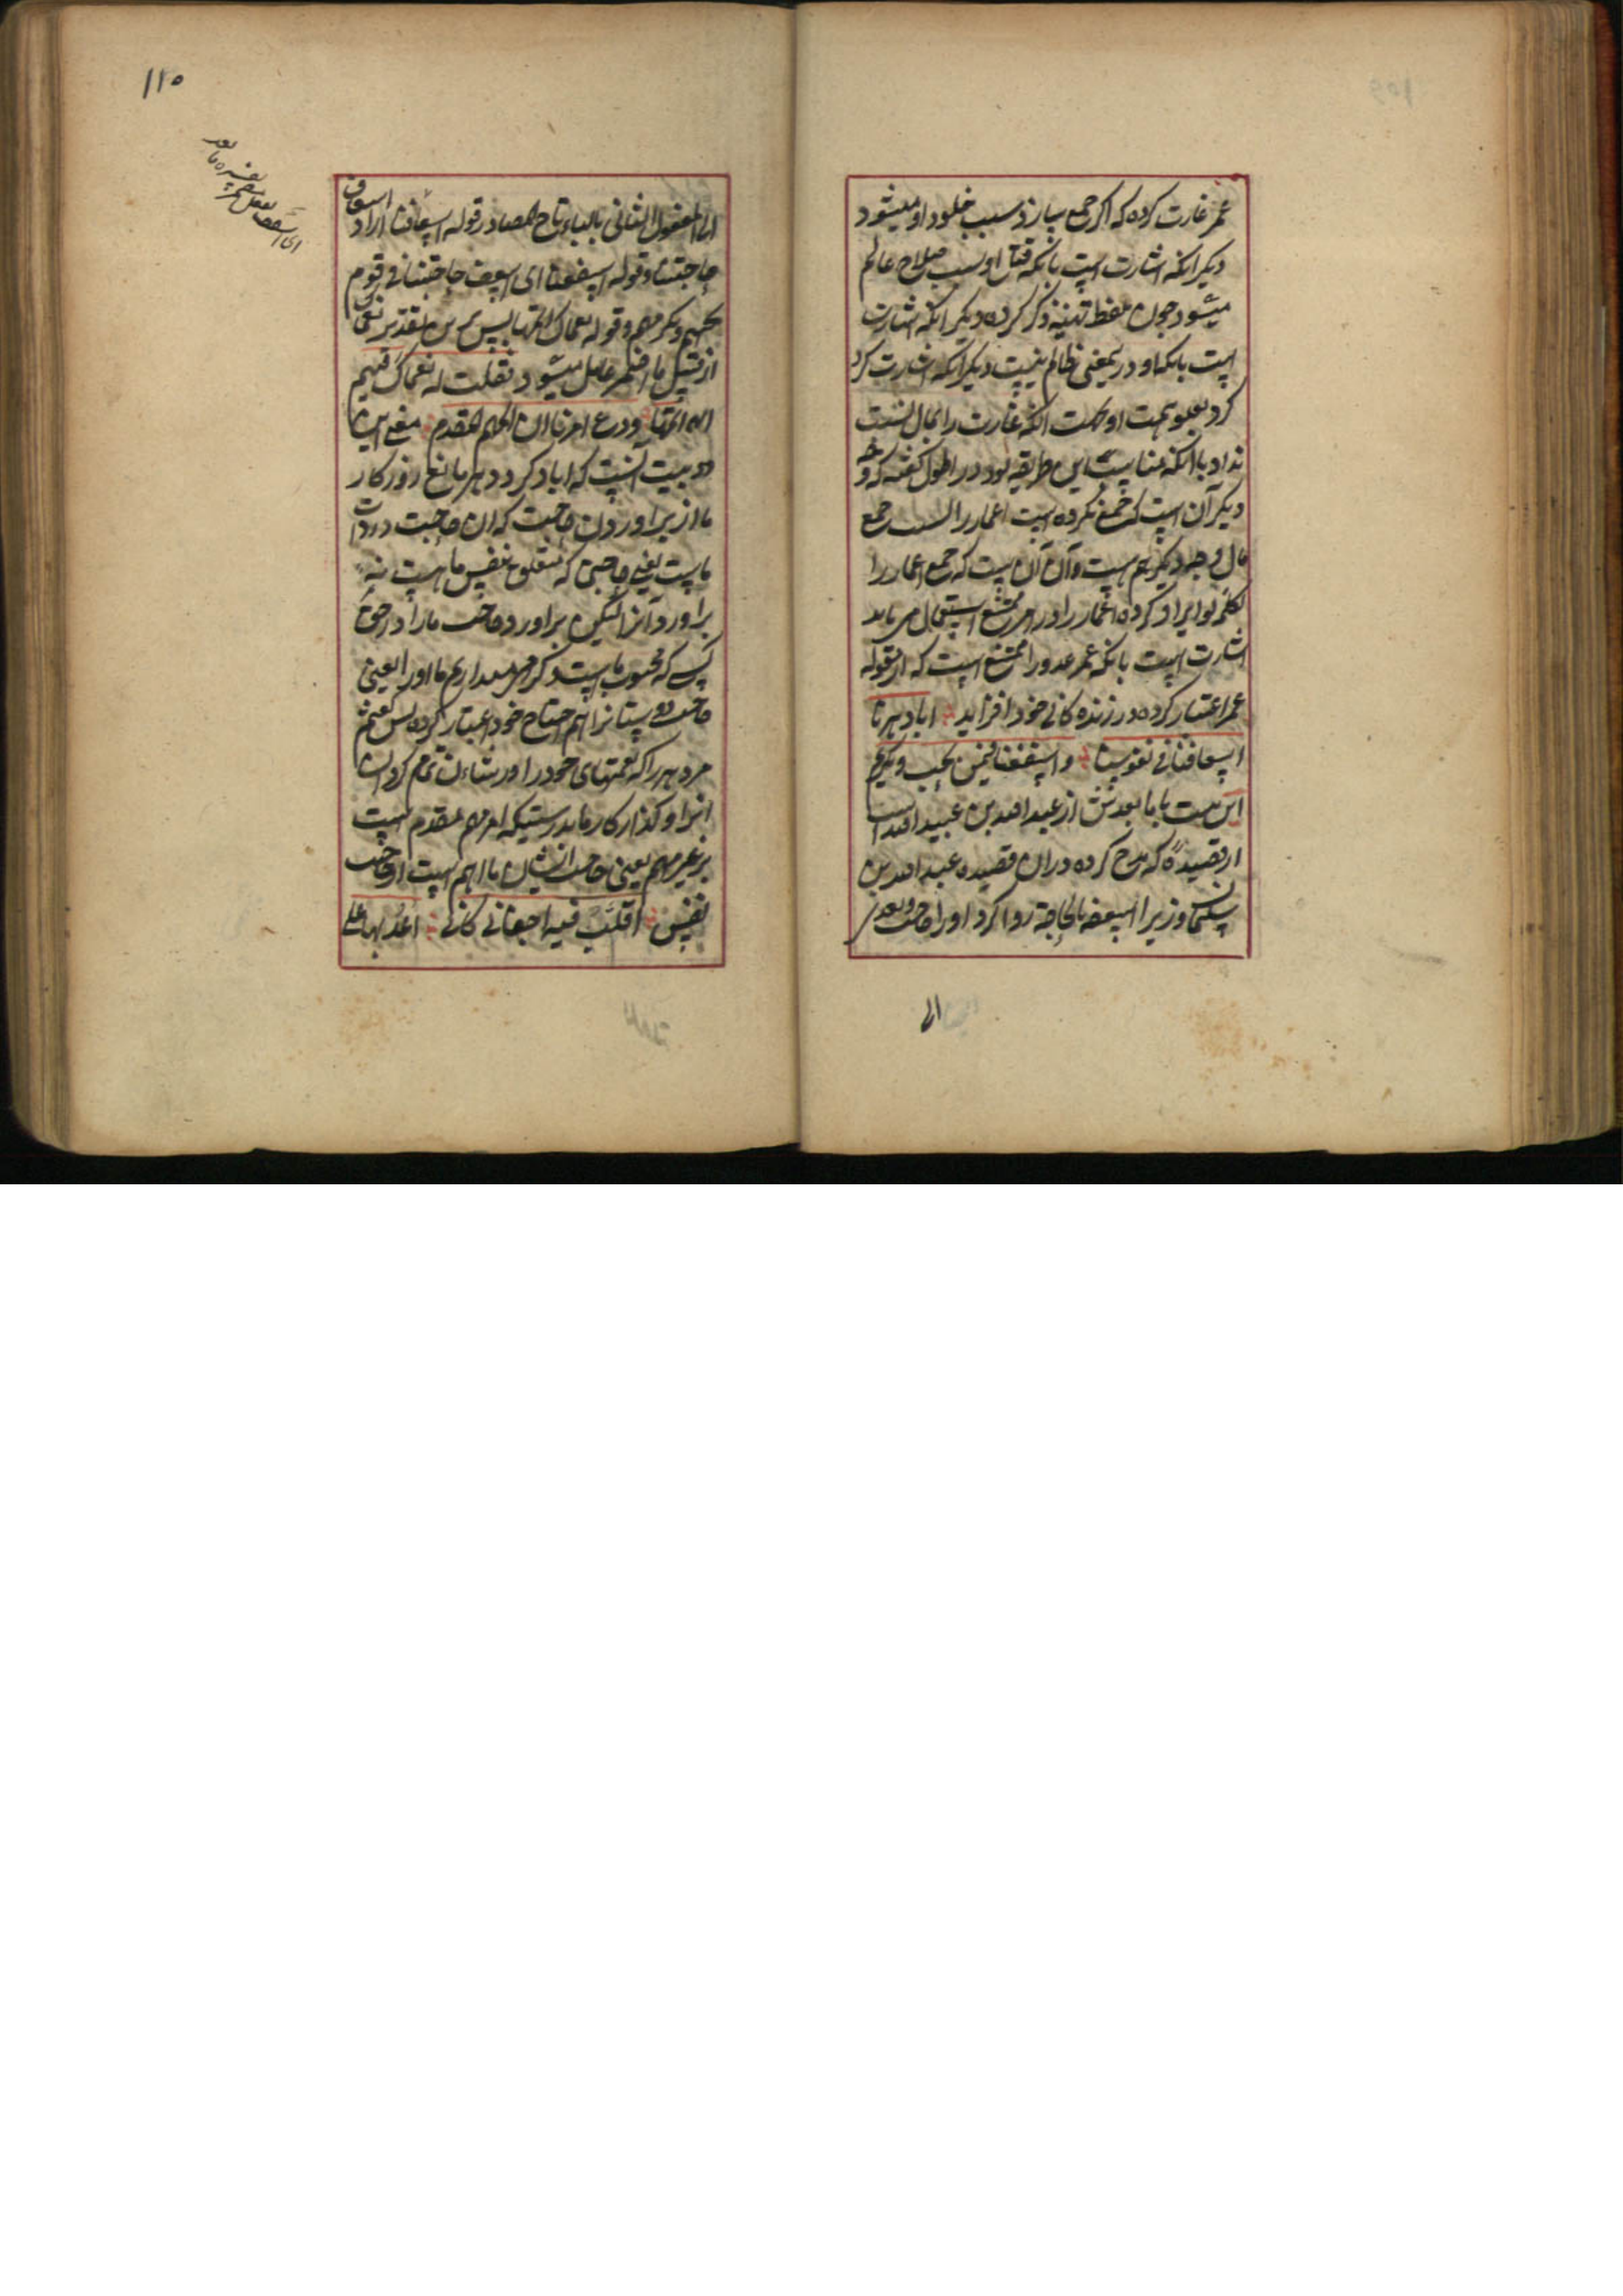 عمر غارت کرده که اکر جمع سازد سبب خلود او میشود
دیکر انکه اشارت است بانکه قتل او سبب صلاح عالم
میشود چون لفظ تهنیه ذکر کرده دیکر انکه اشارت
است بانکه او در یمعنی ظالم نیست دیکر انکه اشارت کرد
کرد بعلو همت او انکه غارت را بمال نسبت
نداد با انکه مناسب این طریقه بود در اطول کفته که وجه
دیکر آن است که جمع نکرده است اعمار را جمع
مال وجه دیکر هم هست و آن آن است که جمع اعمار را
بکلمه لو ایراد کرده اعمار را در امر ممتنع استعمال می یابد
اشارت است بانکه عمر عدو را ممتنع است که از مقوله
عمر اعتبار کرده در زنده کانی خود افزاید ابا دهرنا
اسعافنا فی نفوسنا و اسعفنا فیمن نحب و نکرم
این بیت با ما بعدش از عبد الله بن عبید الله است
از قصیده که مدح کرده در ان قصیده عبید الله بن
سلیمان وزیر را اسعفه بالحاجة روا کرد او را حاجت و یعدی
الی
۱۱۰
الی المفعول الثانی بالباء تاج المصادر قوله اسعافنا اراد اسعاف
حاجتنا و قوله اسعفنا ای اسعف حاجتنا فی قوم
نحبهم و نکرمهم و قوله نعماک اتمها پس برین تقدیر نعمی
از قبیل ما اضمر عامله میشود فقلت له نعماک فیهم
اتمها و دع امرنا ان المهم المقدم معنی این
دو بیت آنست که ابا کرد دهر ما یعنی روزکار
ما از براوردن حاجت که ان حاجت در ذات
ماست یعنی حاجتی که متعلق بنفس ما هست نه
براورد آنرا لیکن براورد حاجت ما را در حق
کسی که محبوب ماست و کرامی میداریم ما او را یعنی
حاجت دوستانرا هم احتیاج خود اعتبار کرده پس کفتم
مر دهر را که نعمتهای خود را در شان تمام کردان
انرا و کذار کار ما بدرستیکه امر مهم مقدم است
بر غیر مهم یعنی حاجت ایشان ما اهم است از حاجت
نفس اقلب فیه اجفانی کانی اعد بها علی